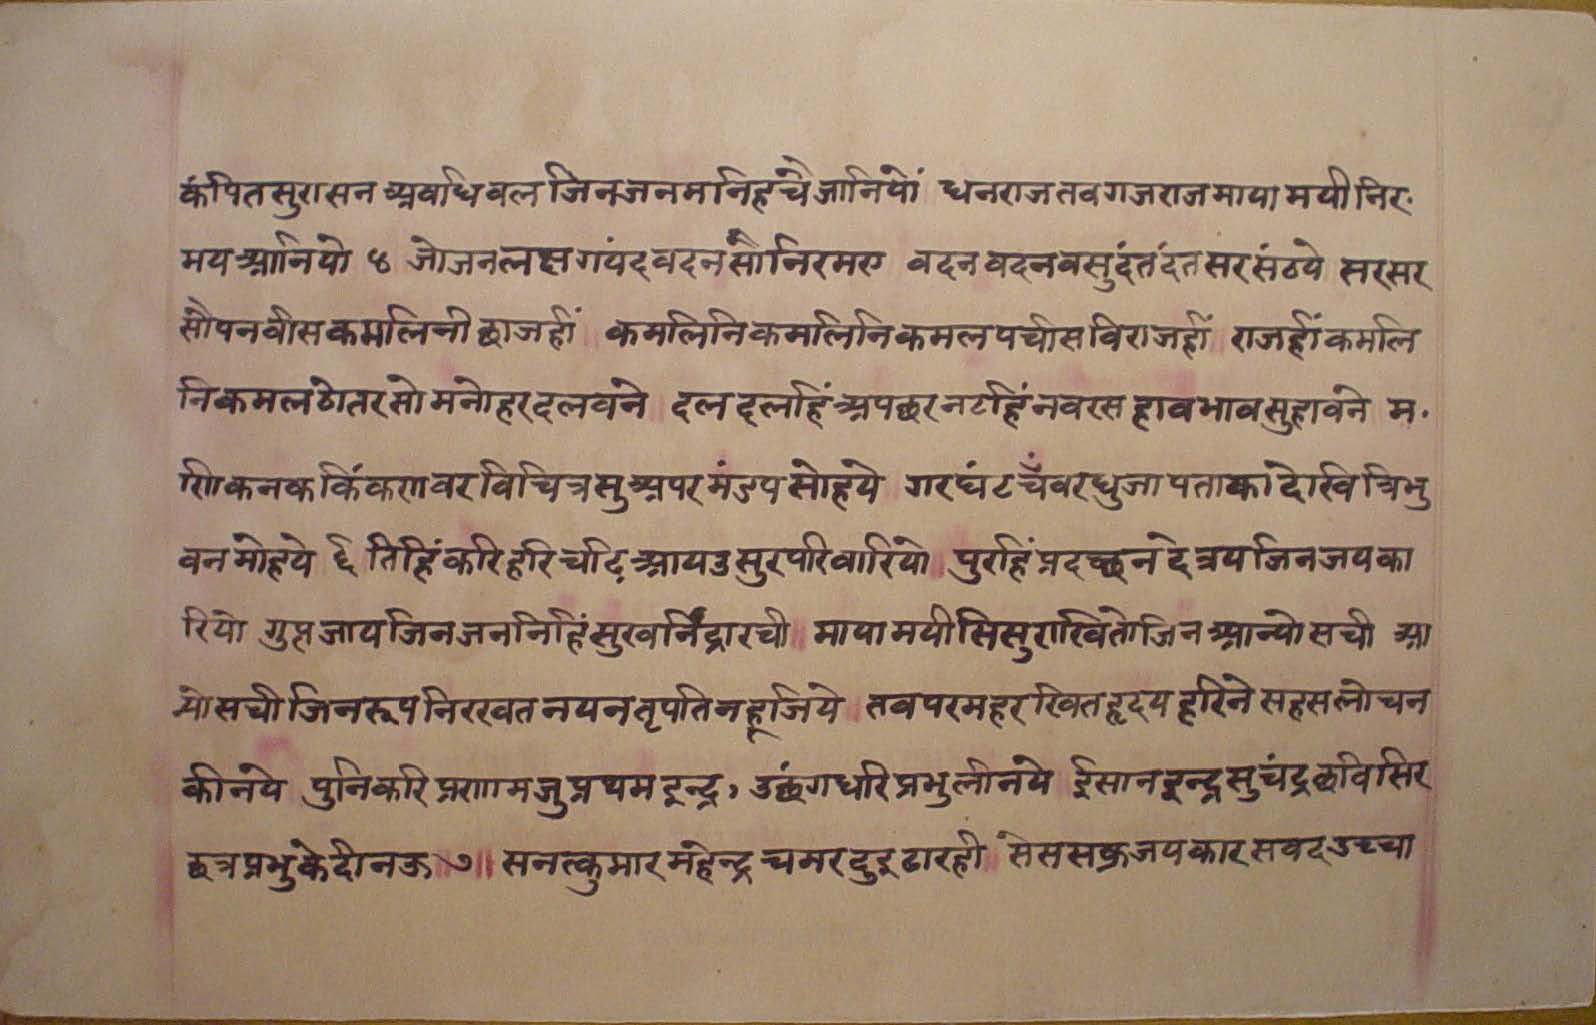 कंपितसुरासन अवधिवल जिनजनमनिहचैजानियों धनराजतवगजराजमायामयीनिर
मयआनियो ५ जोजनलक्षगयंदवदनसौनिरमए वदनवदनवसुदंतदंतसरसंठये सरसर
सौपनवीसकमलिनीछाजहीं कमलिनिकमलिनिकमलपचीसविराजहीं राजहींकमलि
निकमलठोतरसोमनोहरदलवने दलदलहिंअपछरनटहिंनवरसहावभावसुहावने म
णिकनककिंकणवरविचित्रसुअपरमंडपसोहये गरघंटचँवरधुजापताकादेखित्रिभु
वनमोहये ६ तिहिंकरिहरिचढिआयउसुरपरिवारियो पुरहिंप्रदच्छनदेत्रयजिनजयका
रियो गुप्तजायजिनजननिहिंसुखनिंद्रारची मायामयीसिसुराखितोजिनआन्योसची आ
योसचीजिनरूपनिरखतनयनतृपतिनहूजिये तवपरमहरखितहृदयहरिनेसहसलोचन
कीनये पुनिकरिप्रणामजुप्रथमइन्द्र, उछंगधरिप्रभुलीनये ईसानइन्द्रसुचंद्रछविसिर
छत्रप्रभुकेदीनऊ ७॥ सनत्कुमारमहेन्द्रचमरदुइढारही सेससक्रजयकारसवदउच्चा